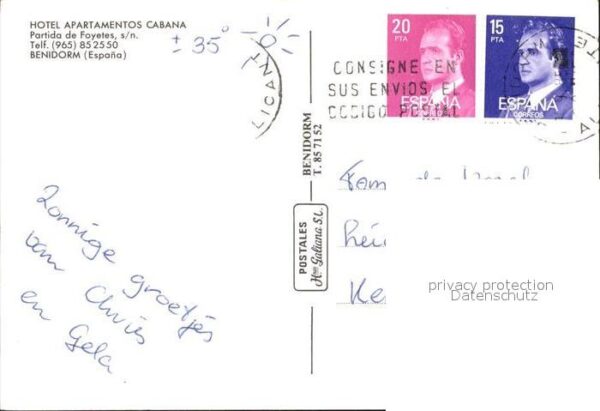 HOTEL APARTAMENTOS CABANA
Partida de Foyetes, s/n.
Telf. (965) 852550
BENIDORM (España)
± 35°
20
PTA
ESPAÑA
15
PTA
ESPAÑA
CORREOS
CONSIGNE EN
SUS ENVIOS EL
CODIGO POSTAL
BENIDORM
T. 85 71 52
POSTALES
Hnos Galiana S.L.
Zonnige groetjes
van Chris
en Gela
Fam de
privacy protection
Datenschutz